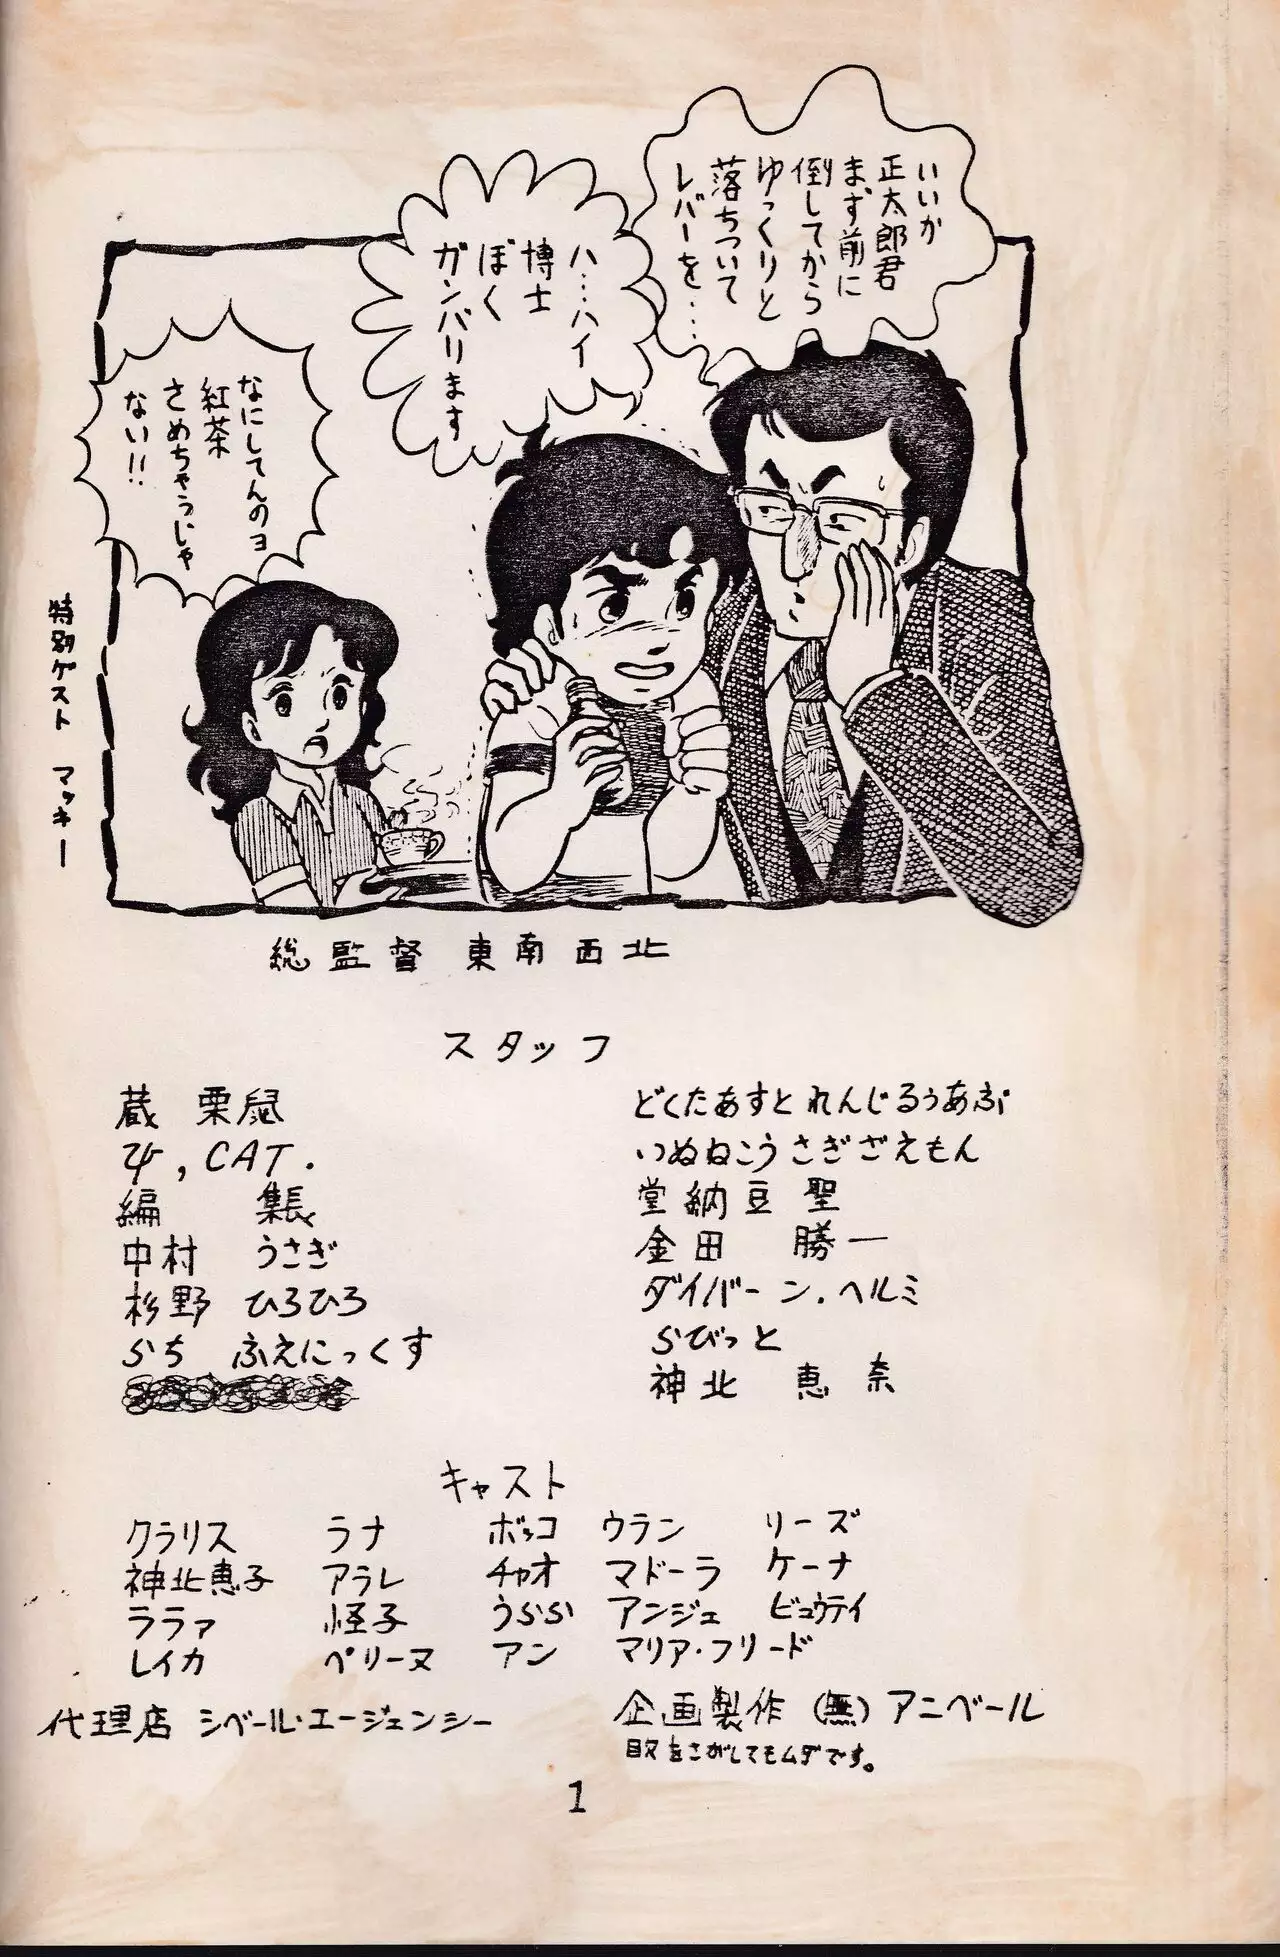 いいか
正太郎君
まず前に
倒してから
ゆっくりと
落ちついて
レバーを・・・
ハ・・・ハイ
博士
ぼく
ガンバリます
なにしてんのヨ
紅茶
さめちゃうじゃ
ない!!
特別ゲスト マッキー
総監督 東南西北
スタッフ
蔵 栗鼠
, CAT.
編 集長
中村 うさぎ
杉野 ひろひろ
らち ふえにっくす
どくたあすとれんじるぅあぶ
いぬねこうさぎざえもん
堂納豆聖
金田 勝一
ダイバーン.ヘルミ
らびっと
神北 恵奈
キャスト
クラリス ラナ ボッコ ウラン リーズ
神北恵子 アラレ チャオ マドーラ ケーナ
ララァ 怪子 うらら アンジェ ビュウテイ
レイカ ペリーヌ アン マリア・フリード
代理店 シベール・エージェンシー
企画製作 (無) アニベール
目次をさがしてもムダです。
1